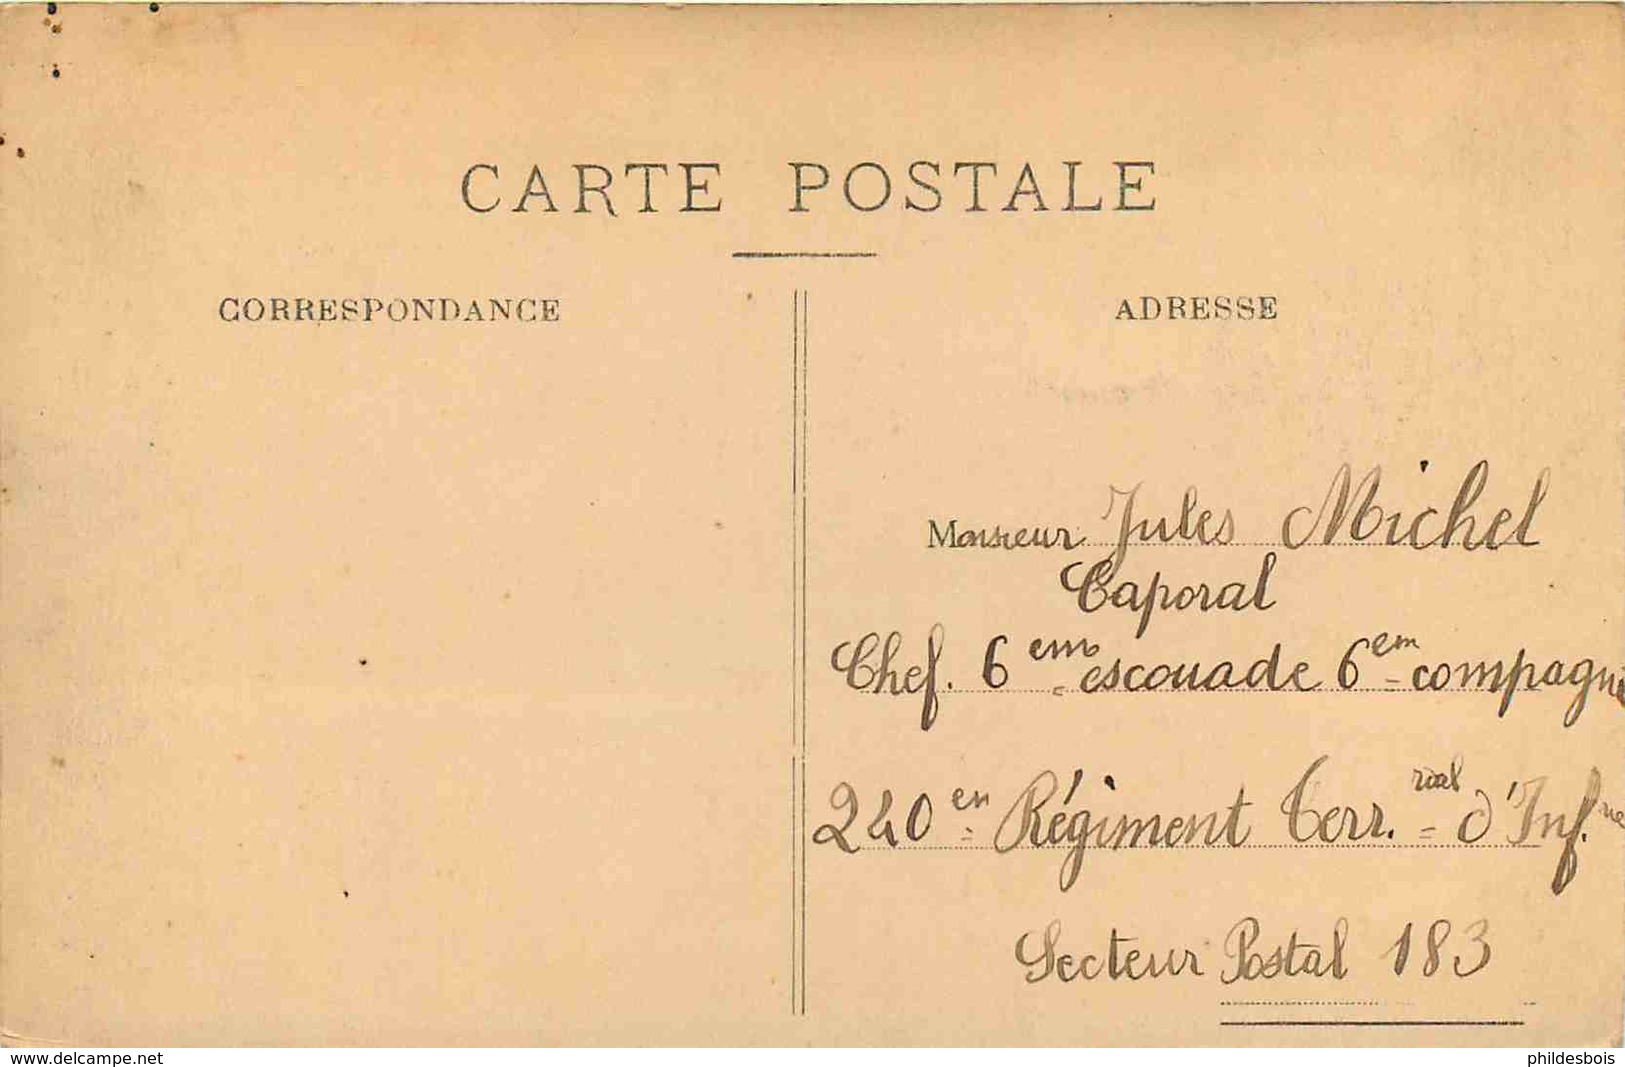 CARTE POSTALE
CORRESPONDANCE
ADRESSE
Monsieur Jules Michel
Caporal
Chef. 6 em escouade 6 em compagnie
240 en Régiment Terr. rial d'Inf. rie
Secteur Postal 183
www.delcampe.net
phildesbois